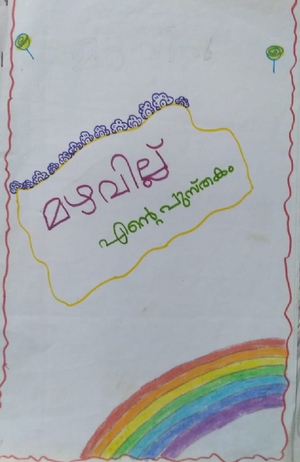 മഴവില്ല്
എന്റെ പുസ്തകം